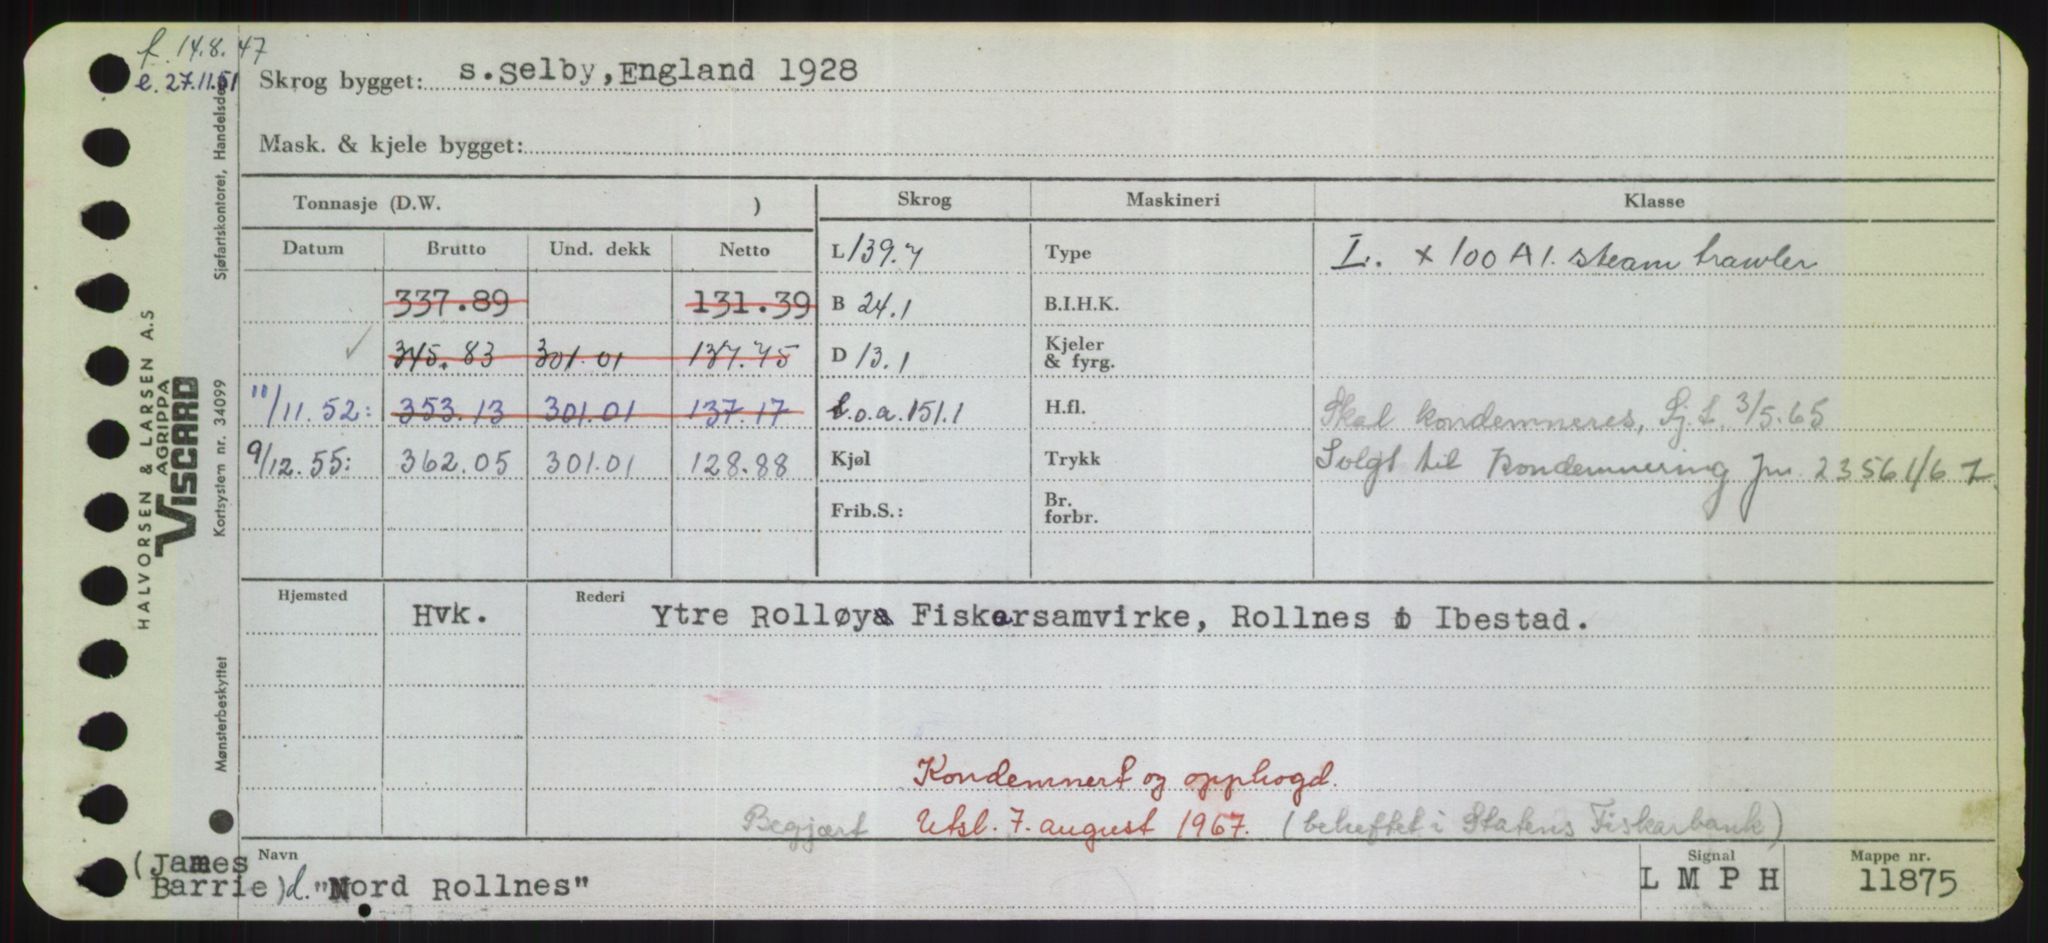 f. 14.8.47
e. 27.11.51
Skrog bygget: s.Selby,England 1928
Mask. & kjele bygget:
Tonnasje (D.W. )
Skrog
Maskineri
Klasse
Datum Brutto Und. dekk Netto
L 139.7
Type
L. + 100 A 1. steam trawler
337.89 131.39
B 24.1
B.I.H.K.
345.83 301.01 137.75
D 13.1
Kjeler
& fyrg.
11/11.52: 353.13 301.01 137.17
L.o.a. 151.1
H.fl.
Skal kondemneres, Sj.f. 3/5.65
9/12.55: 362.05 301.01 128.88
Kjøl
Trykk
Solgt til kondemnering jnr. 23561/67
Frib.S.:
Br.
forbr.
Hjemsted Hvk. Rederi Ytre Rolløya Fiskarsamvirke, Rollnes i Ibestad.
Kondemnert og opphogd.
Begjært Utsl. 7. august 1967. (beheftet i Statens Fiskarbank)
(James
Barrie) d. Navn "Nord Rollnes"
Signal
L M P H
Mappe nr.
11875
HALVORSEN & LARSEN A.S
AGRIPPA
VISCARD
Mønsterbeskyttet Kortsystem nr. 34099 Sjøfartskontoret, Handelsdep